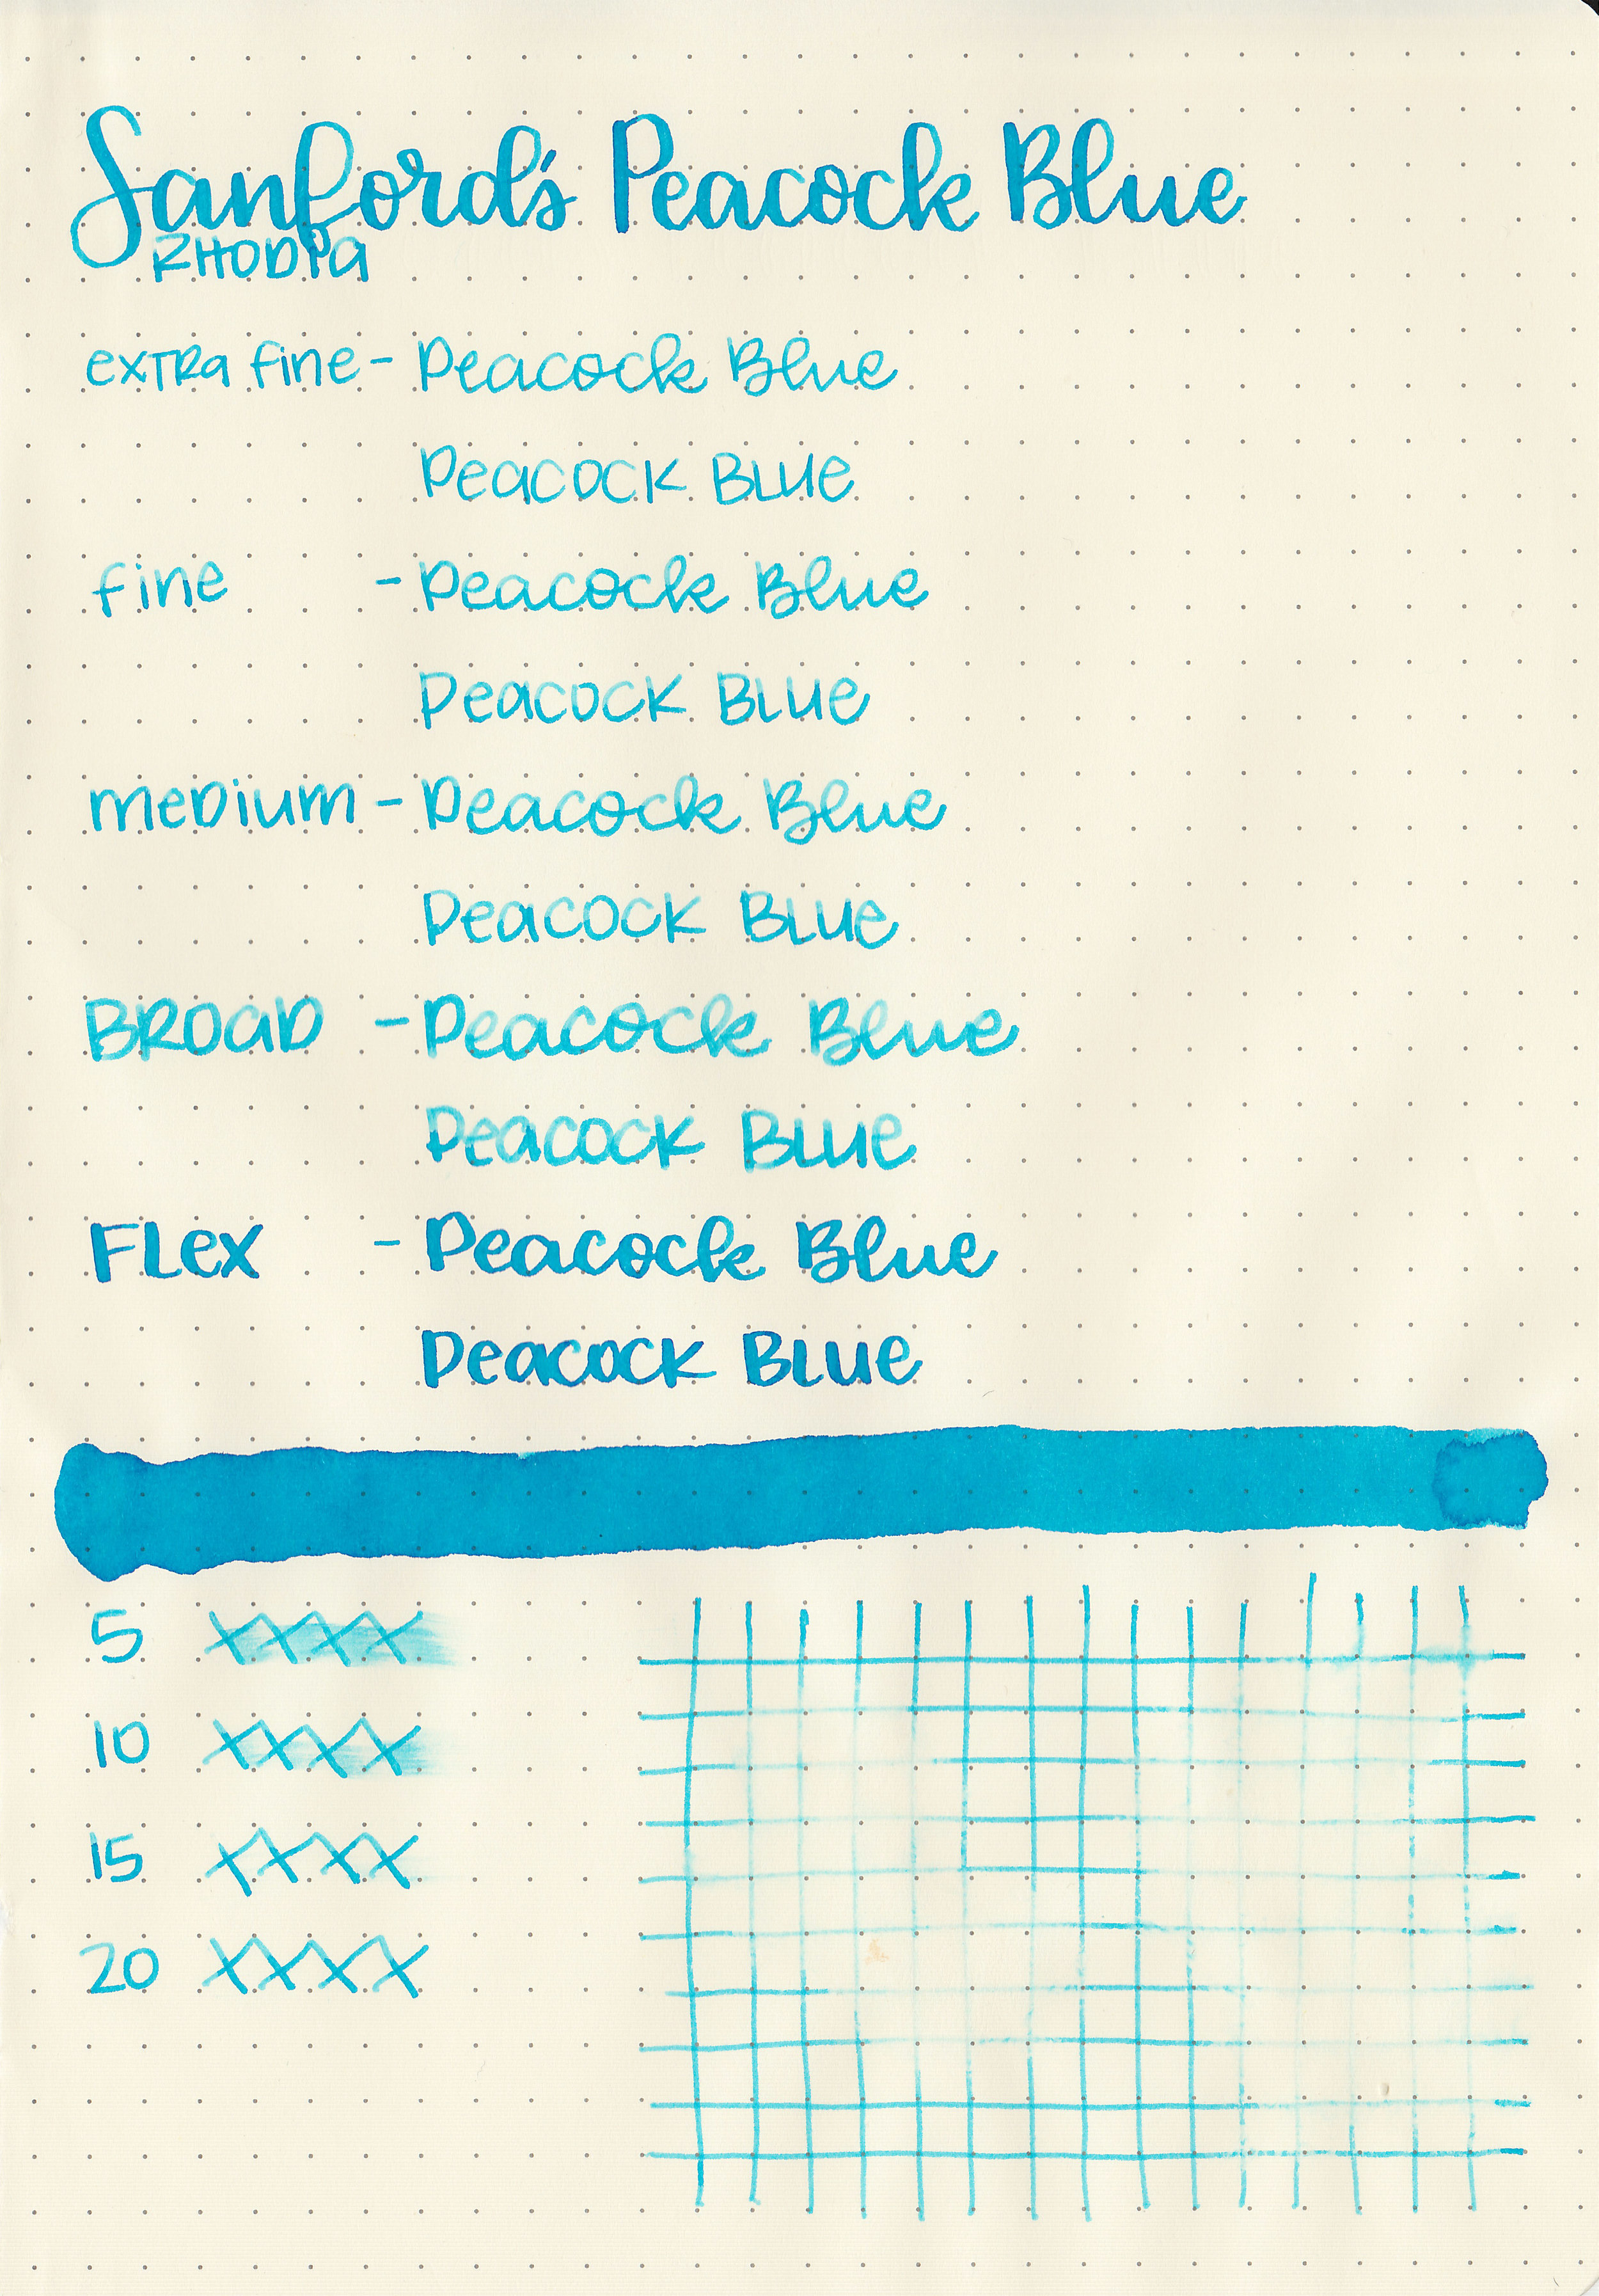 Sanford's Peacock Blue
RHODIA
exTRa fine - Peacock Blue
Peacock BLue
fine - Peacock Blue
Peacock BLue
meDium - Peacock Blue
Peacock BLue
BROaD - Peacock Blue
Peacock BLue
FLex - Peacock Blue
Peacock BLue
5 XXXX
10 XXXX
15 XXXX
20 XXXX